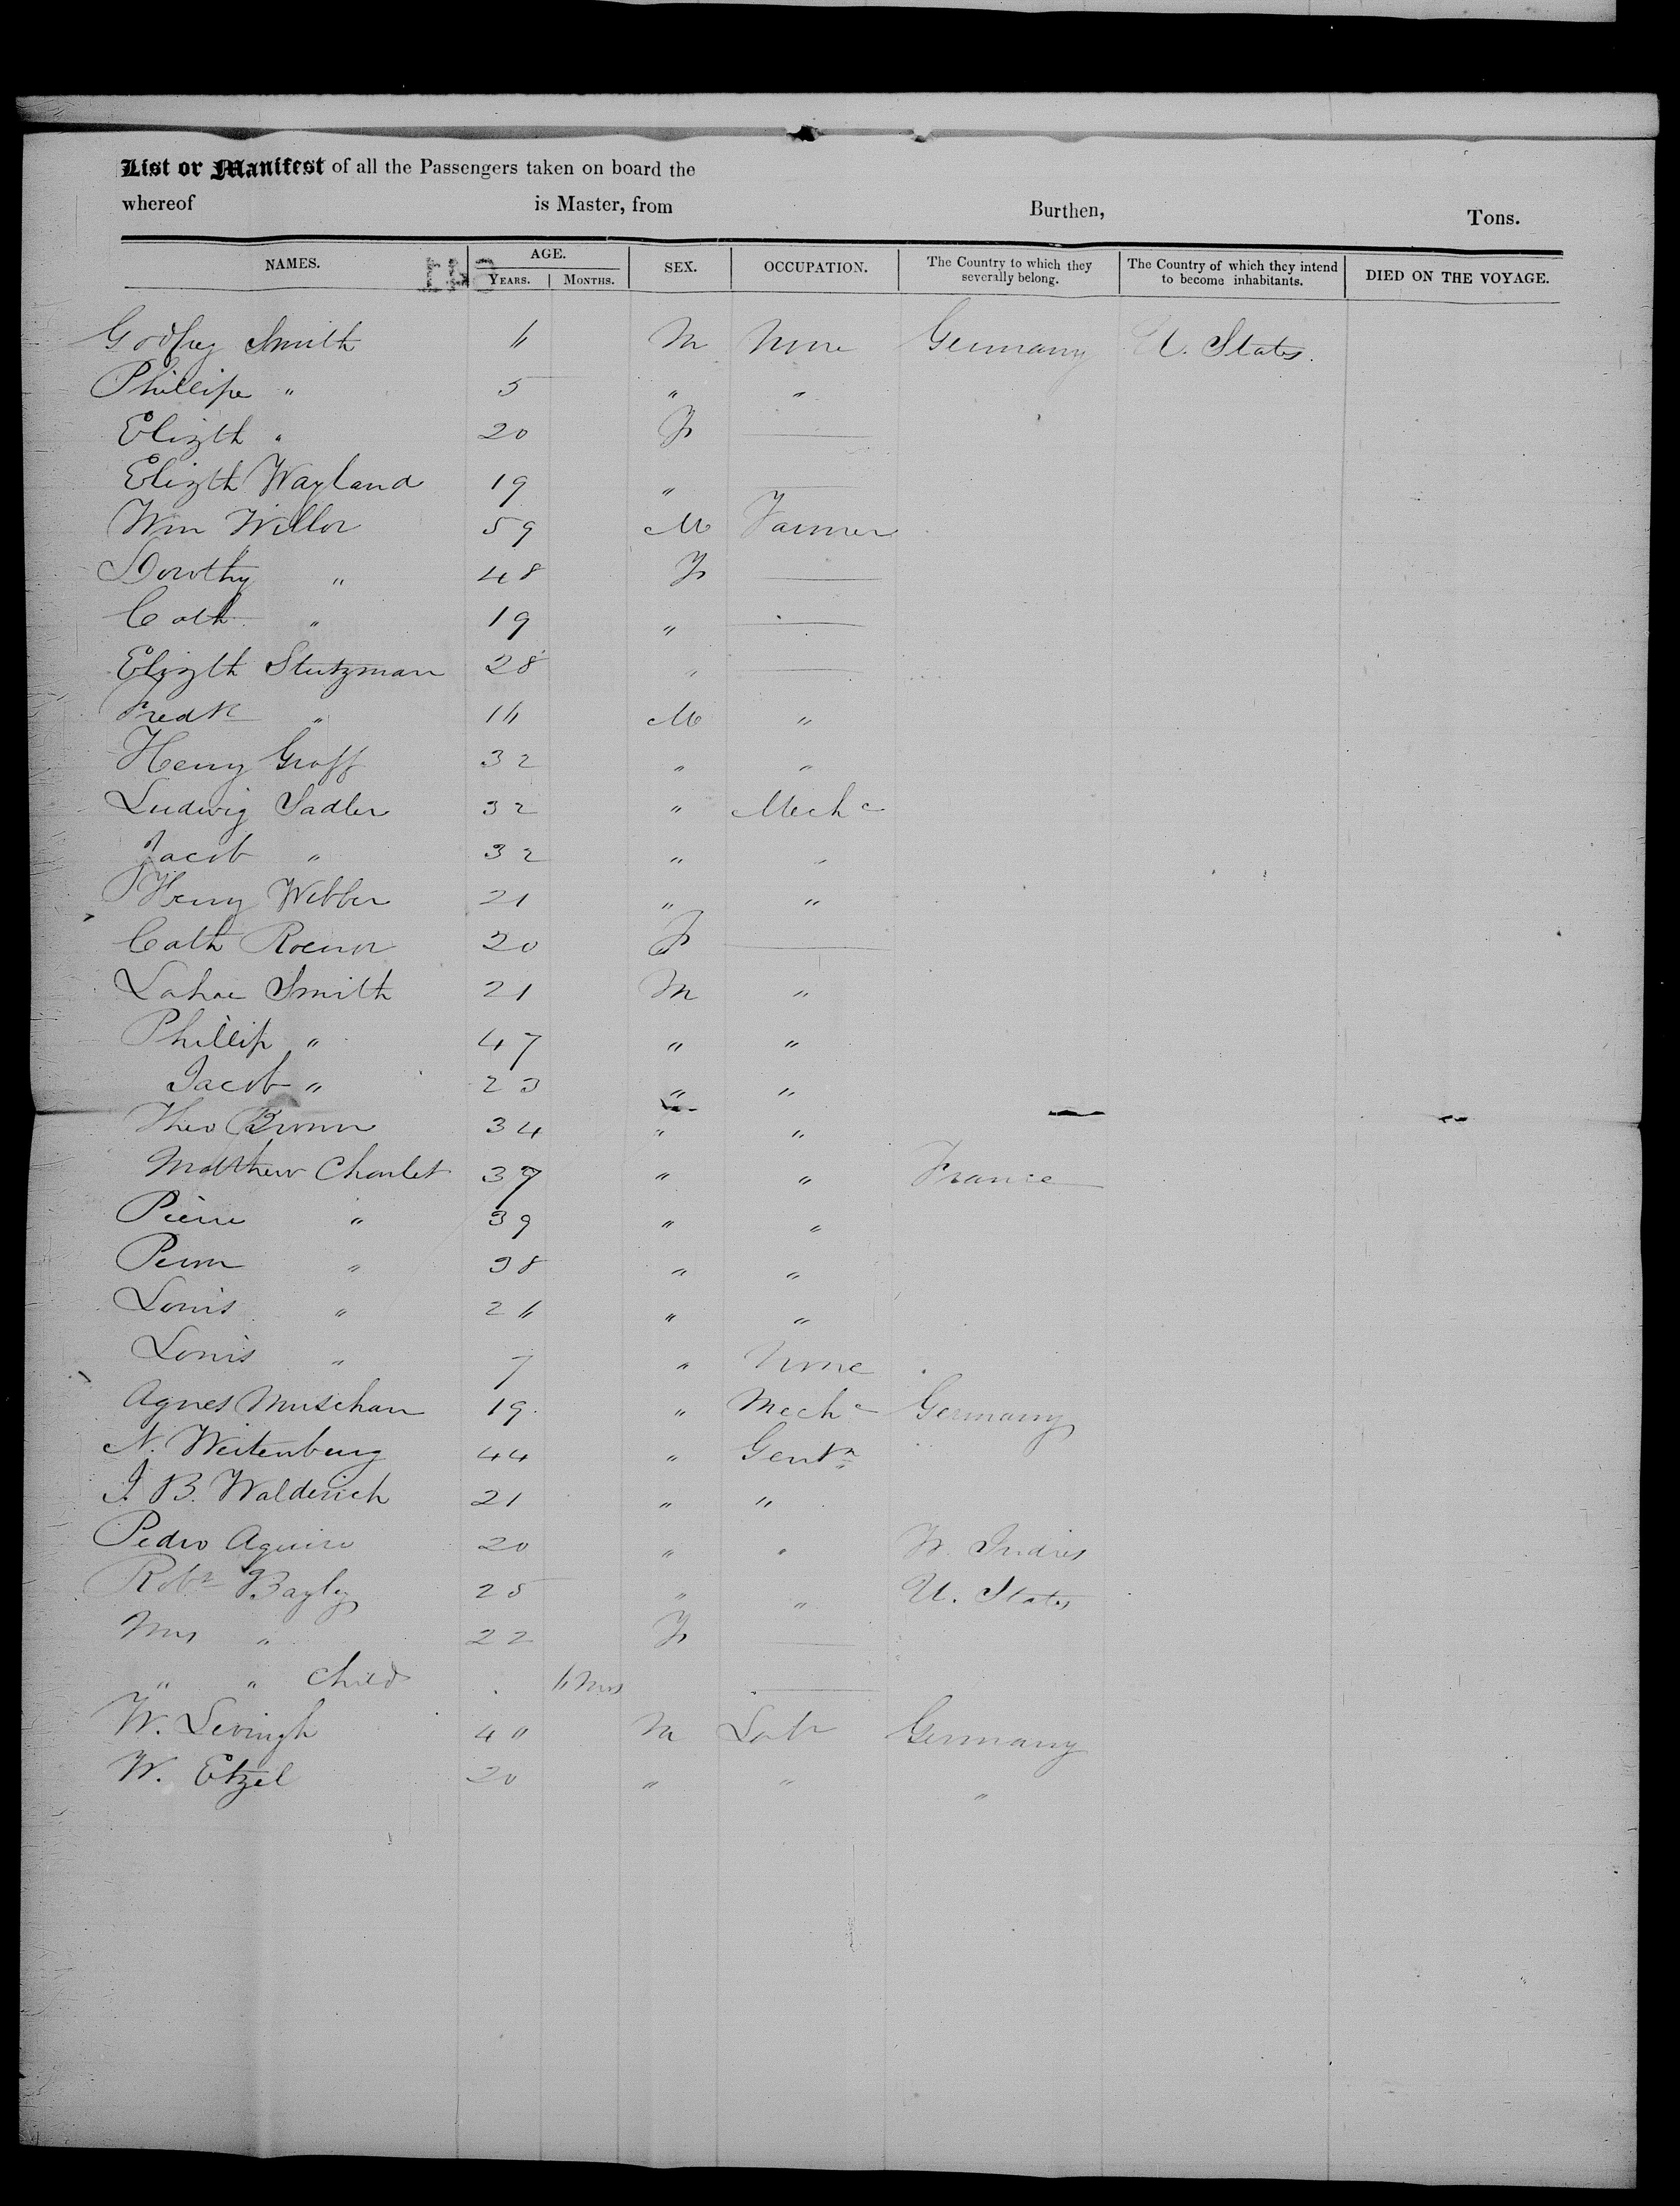 List or Manifest of all the Passengers taken on board the
whereof is Master, from Burthen, Tons.
NAMES. AGE. YEARS. MONTHS. SEX. OCCUPATION. The Country to which they severally belong. The Country of which they intend to become inhabitants. DIED ON THE VOYAGE.
Godfrey Smith M None Germany U. States.
Phillipe " 5 " "
Elizth " 20 F
Elizth Wayland 19 "
Wm Willor 59 M Farmer
Dorothy " 48 F
Cath " 19 "
Elizth Stutzman 28 "
Fredk " M "
Henry Groff 32 " "
Ludwig Sadler 32 " Mechc
Jacob " 32 " "
Henry Webber 21 " "
Cath 20 F
Smith 21 M "
Phillip " 47 " "
Jacob " 23 " "
Theo Brown 34 " "
Matthew Charlet 37 " " France
Pierre " 39 " "
" 38 " "
Louis " " "
Louis " 7 " None
Agnes Muschan 19 " Mechc Germany
N. Weitenburg 44 " Gentn
J. B. Walderich 21 " "
Pedro Aguiro 20 " " W. Indies
Robt Bayley 25 " " U. States
Mrs " 22 F
" " Child Mos
W. Levingh M Labr Germany
W. Etzel 20 " " "